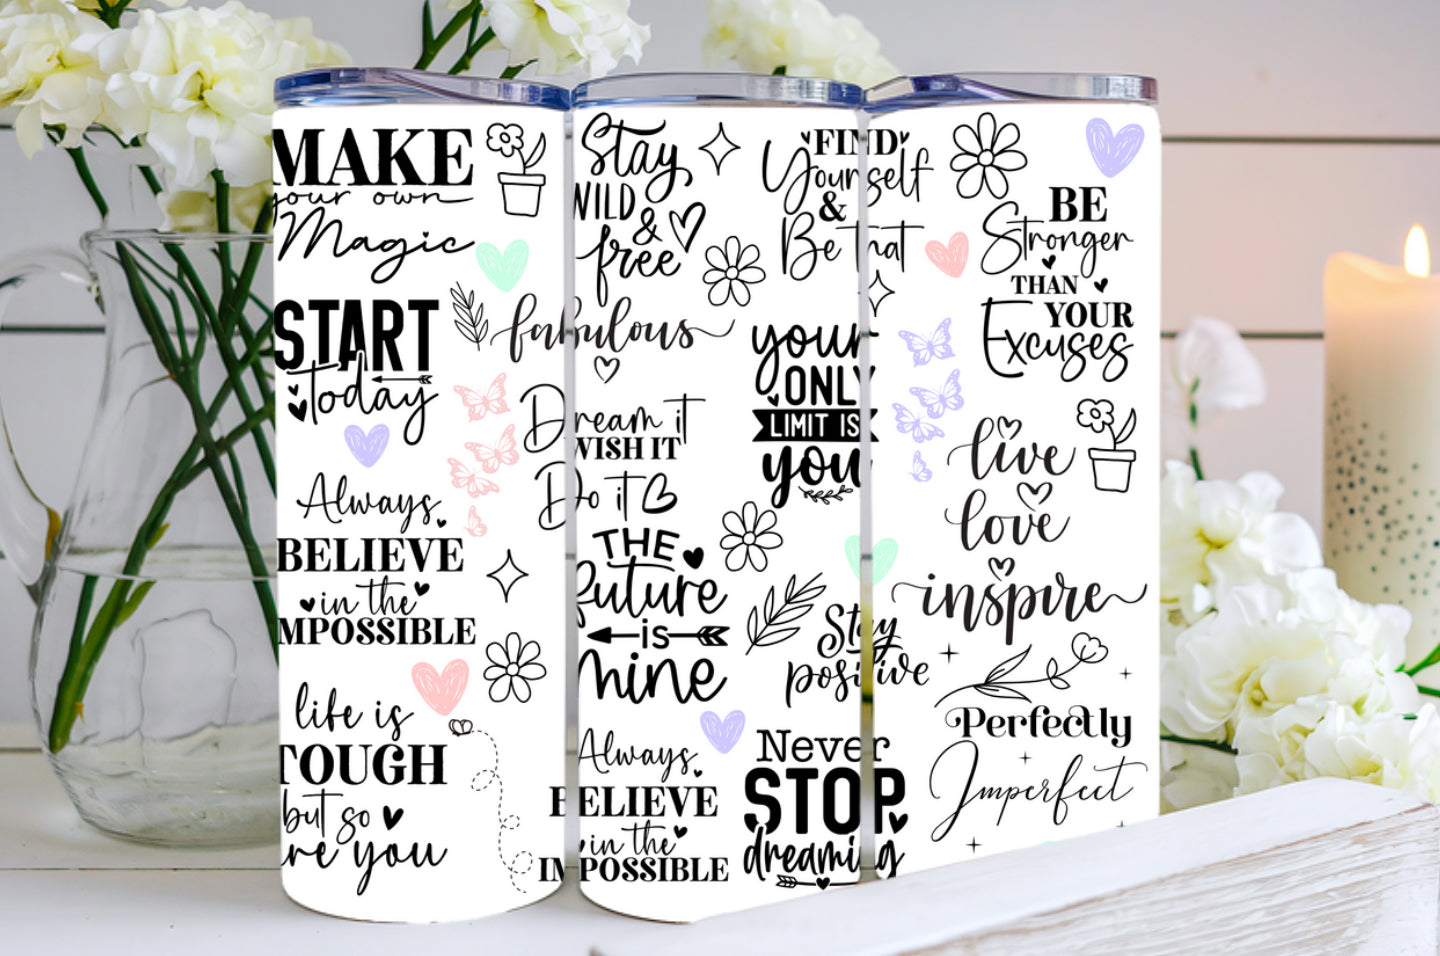 MAKE
your own
Magic
START
Today
Always
BELIEVE
in the
IMPOSSIBLE
life is
TOUGH
but so
are you
Stay
WILD
&
free
fabulous
Dream it
WISH IT
Do it
THE
future
is
mine
Always
BELIEVE
in the
IMPOSSIBLE
FIND
Yourself
&
Be that
your
ONLY
LIMIT IS
you
Stay
positive
Never
STOP
dreaming
BE
Stronger
THAN
YOUR
Excuses
live
love
inspire
Perfectly
Imperfect